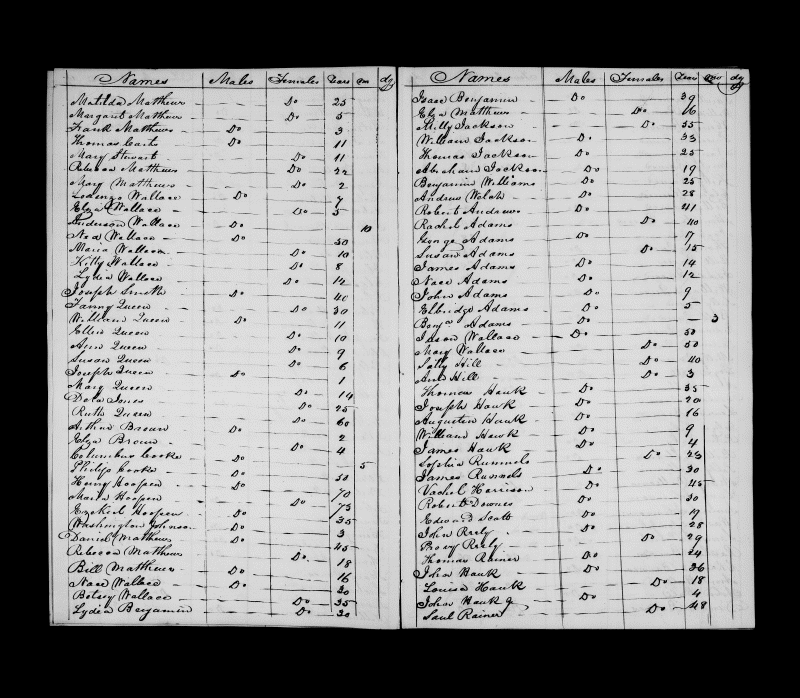 Names Males Females Years mo dy
Matilda Matthews — Do 25
Margaret Matthews — Do 5
Frank Matthews Do — 3
Thomas Do — 11
Mary Stewart — Do 11
Rebecca Matthews — Do 22
Mary Matthews — Do 2
Lorenzo Wallace Do — 7
Eliza Wallace — Do 5
Anderson Wallace Do — 10
Ned Wallace Do — 50
Maria Wallace — Do 10
Kitty Wallace — Do 8
Lydia Wallace — Do 14
Joseph Smith Do — 40
Fanny Queen — Do 30
William Queen Do — 11
Ellen Queen — Do 10
Ann Queen — Do 9
Susan Queen — Do 6
Joseph Queen Do — 1
Mary Queen — Do 14
Jones — Do 25
Ruth Queen — Do 60
Arthur Brown Do — 2
Eliza Brown — Do 4
Columbus Cooke Do — 5
Philip Cooke Do — 50
Henry Hoopen Do — 70
Maria Hoopen — Do 73
Ezekiel Hoopen Do — 35
Washington Johnson Do — 3
Daniel Matthews Do — 45
Rebecca Matthews — Do 18
Bill Matthews Do — 16
Nace Wallace Do — 30
Betsey Wallace — Do 35
Lydia Benjamin — Do 30
Names Males Females Years mo dy
Isaac Benjamin Do — 39
Eliza Matthews — Do 16
Milly Jackson — Do 55
William Jackson Do — 33
Thomas Jackson Do — 25
Abraham Jackson Do — 19
Benjamin Williams Do — 25
Andrew Welch Do — 28
Robert Andrews Do — 41
Rachel Adams — Do 40
George Adams Do — 17
Susan Adams — Do 15
James Adams Do — 14
Nace Adams Do — 12
John Adams Do — 9
Elbridge Adams Do — 5
Benja Adams Do — 3
Jason Wallace Do — 50
Mary Wallace — Do 50
Sally Hill — Do 40
Ann Hill — Do 3
Thomas Hawk Do — 35
Joseph Hawk Do — 20
Augustin Hawk Do — 16
William Hawk Do — 9
James Hawk Do — 4
Sophia Runnels — Do 23
James Runnels Do — 30
Vachel Harrison Do — 45
Robert Downes Do — 30
Edward Scott Do — 17
John Reely Do — 28
Reely — Do 29
Thomas Rainer Do — 24
John Hawk Do — 36
Louisa Hawk — Do 18
John Hawk Jr Do — 4
Saul Rainer — Do 48